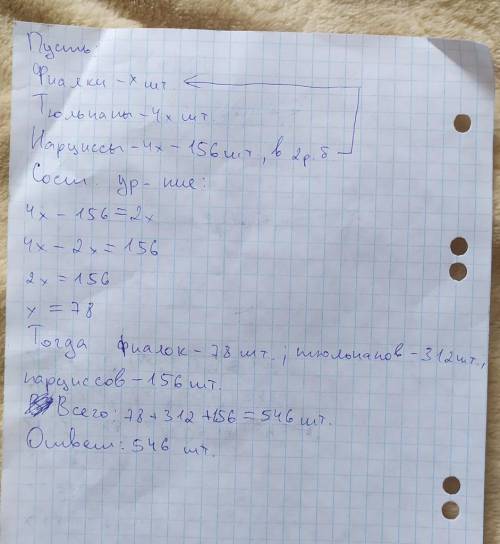 Пусть:
Фиалки - x шт
Тюльпаны - 4x шт
Нарциссы - 4x - 156 шт, в 2 р. б
Сост. ур-ние:
4x - 156 = 2x
4x - 2x = 156
2x = 156
x = 78
Тогда фиалок - 78 шт.; тюльпанов - 312 шт.,
нарциссов - 156 шт.
Всего: 78 + 312 + 156 = 546 шт.
Ответ: 546 шт.